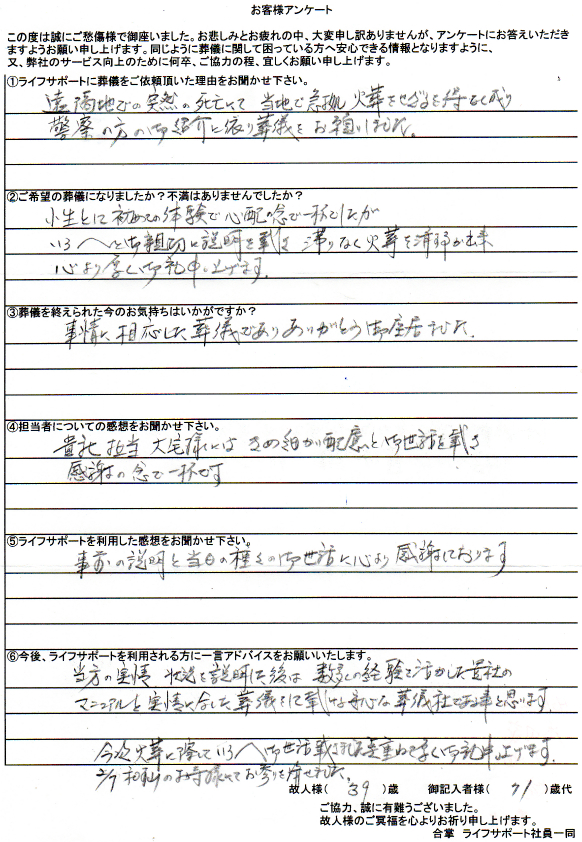 お客様アンケート
この度は誠にご愁傷様で御座いました。お悲しみとお疲れの中、大変申し訳ありませんが、アンケートにお答えいただき
ますようお願い申し上げます。同じように葬儀に関して困っている方へ安心できる情報となりますように、
又、弊社のサービス向上のために何卒、ご協力の程、宜しくお願い申し上げます。
①ライフサポートに葬儀をご依頼頂いた理由をお聞かせ下さい。
遠隔地での突然の死亡にて 当地で急拠 火葬をせざるを得なく成り
警察の方の御紹介に依り葬儀をお願いしました。
②ご希望の葬儀になりましたか？不満はありませんでしたか？
小生とに初めての体験で心配の念で一杯でしたが
いろへと御親切に説明を載き 滞りなく火葬を済ます出来
心より厚く御礼申し上げます。
③葬儀を終えられた今のお気持ちはいかがですか？
事情に相応した葬儀でありありがとう御座居ました。
④担当者についての感想をお聞かせ下さい。
貴社担当 大宅様には きめ細かい配慮と御世話を載き
感謝の念で一杯です
⑤ライフサポートを利用した感想をお聞かせ下さい。
事前の説明と当日の種々の御世話に心より感謝しております
⑥今後、ライフサポートを利用される方に一言アドバイスをお願いいたします。
当方の実情 状況を説明した後は 数多くの経験を活かした貴社の
マニュアルと実情に合した葬儀をして載ける安心な葬儀社である事と思います。
今次火葬に際していろへ御世話載きました重ねて厚く御礼申し上げます。
のお寺様にてお参りを済せました。
故人様( 39 )歳 御記入者様( 71 )歳代
ご協力、誠に有難うございました。
故人様のご冥福を心よりお祈り申し上げます。
合掌 ライフサポート社員一同